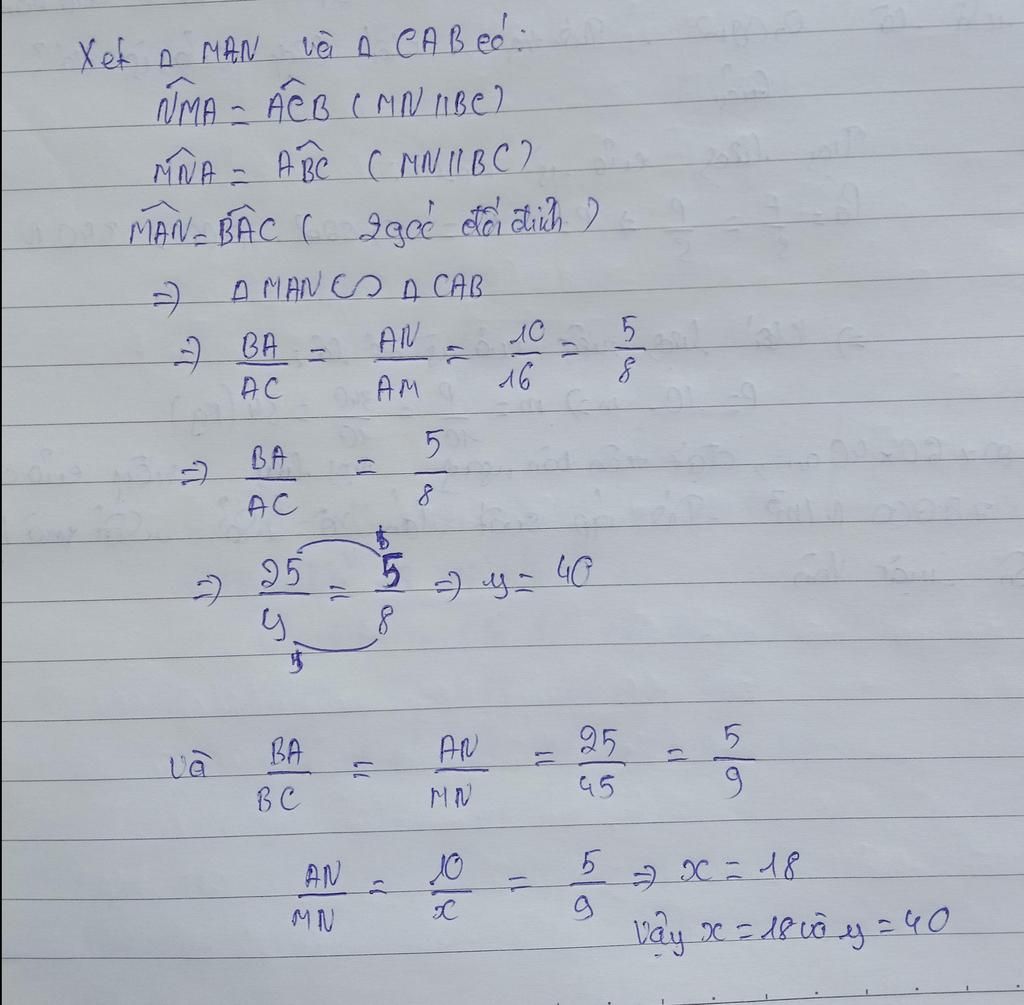 Xét Δ MAN và Δ CAB có:
N̂MA = AĈB (MN//BC)
M̂NA = AB̂C (MN//BC)
MÂN = BÂC ( 2 góc đối đỉnh )
=> Δ MAN ∽ Δ CAB
=> BA/AC = AN/AM = 10/16 = 5/8
=> BA/AC = 5/8
=> 25/y = 5/8 => y = 40
Và BA/BC = AN/MN = 25/45 = 5/9
AN/MN = 10/x = 5/9 => x = 18
Vậy x = 18 và y = 40